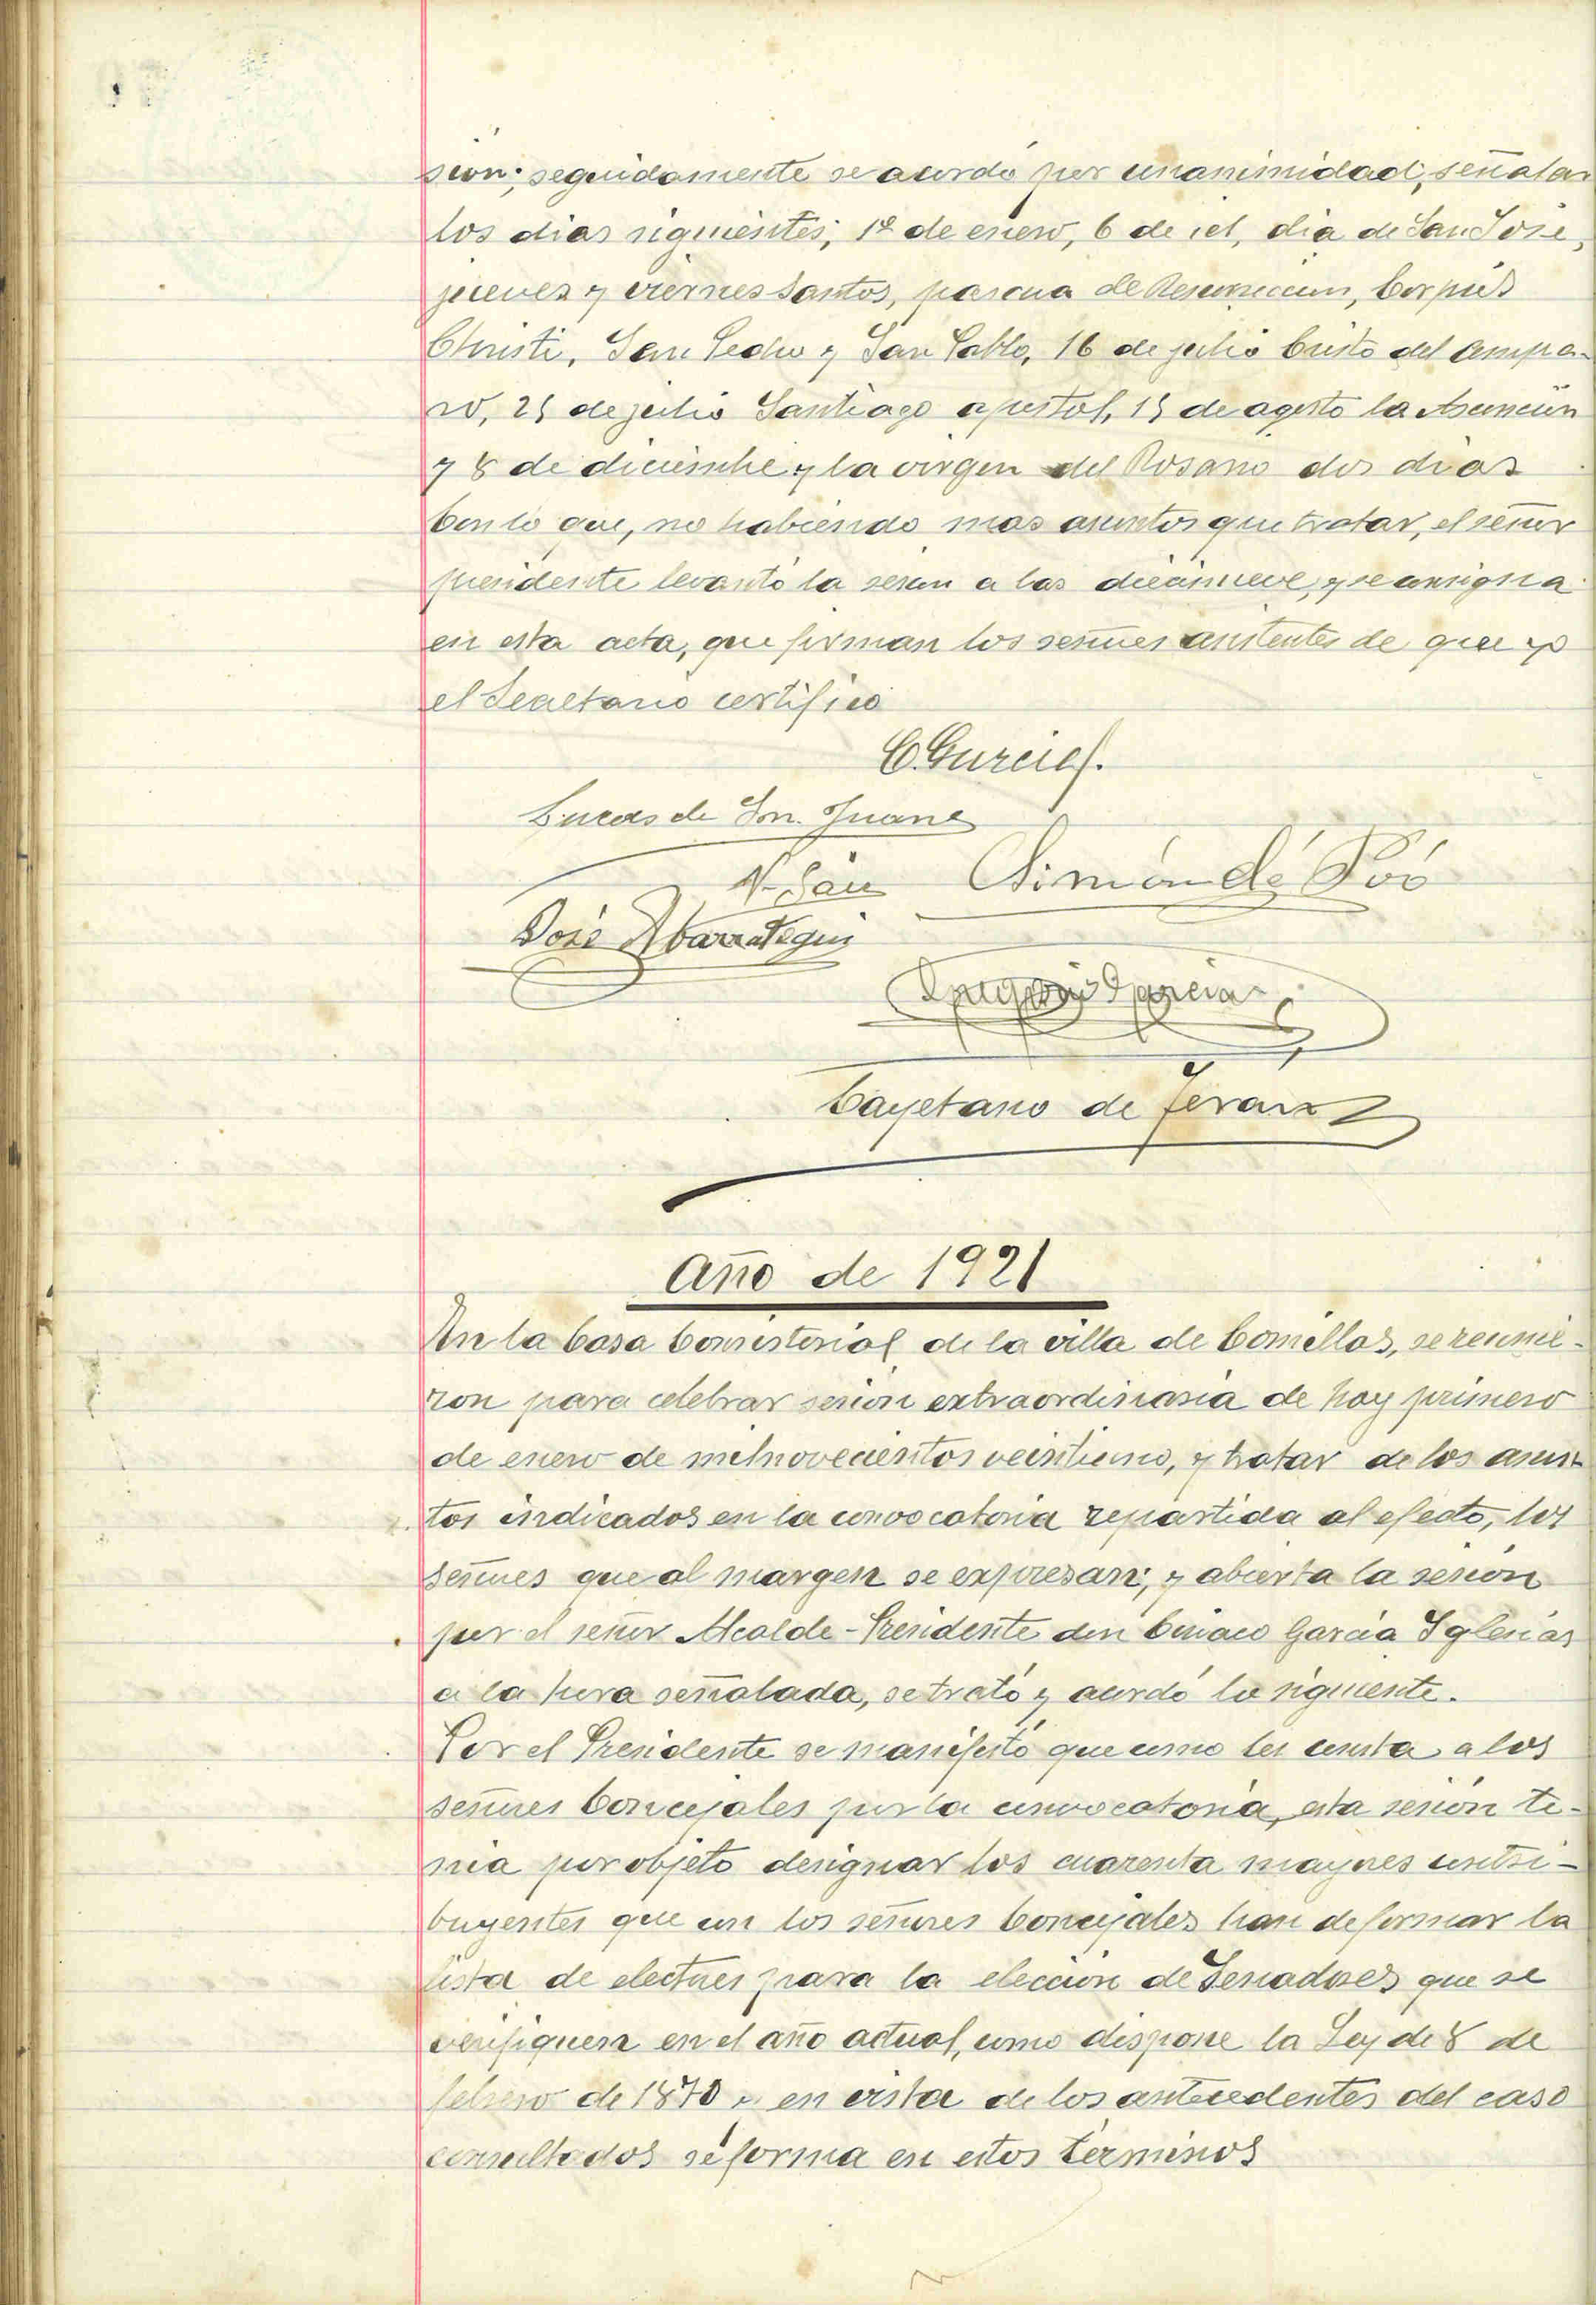 sión; seguidamente se acordó por unanimidad, señalar
los dias siguientes; 1º de enero, 6 de id, dia de San José,
jueves y viernes santos, pascua de Resurreccion, Corpus
Christi, San Pedro y San Pablo, 16 de julio Cristo del Ampa-
ro, 25 de julio Santiago apostol, 15 de agosto la Asunción
y 8 de diciembre y la virgen del Rosario dos dias
Con lo que, no habiendo mas asuntos que tratar, el señor
presidente levantó la sesion a las diecinueve, y se consigna
en esta acta, que firman los señores asistentes de que yo
el Secretario certifico
C. Garcia
Lucas de Sn. Juane
Simón de Póo
José Abarrategui
Gregorio Garcia
Cayetano de Terán
Año de 1921
En la Casa Consistorial de la villa de Comillas, se reunie-
ron para celebrar sesión extraordinaria de hoy primero
de enero de milnovecientos veintiuno, y tratar de los asun-
tos indicados en la convocatoria repartida al efecto, los
señores que al margen se expresan; y abierta la sesión
por el señor Alcalde-Presidente don Ciriaco García Iglesias
a la hora señalada, se trató y acordó lo siguiente.
Por el Presidente se manifestó que como les consta a los
señores Concejales por la convocatoria, esta sesión te-
nia por objeto designar los cuarenta mayores contri-
buyentes que con los señores Concejales han de formar la
lista de electores para la elección de Senadores que se
verifiquen en el año actual, como dispone la Ley de 8 de
febrero de 1870 y en vista de los antecedentes del caso
consultados se forma en estos términos